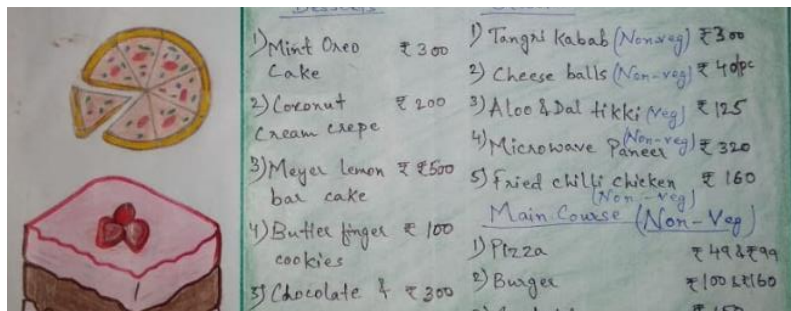 Desserts
1) Mint Oreo ₹ 300
Cake
2) Coconut ₹ 200
Cream crepe
3) Meyer lemon ₹ ₹500
bar cake
4) Butter finger ₹ 100
cookies
5) Chocolate & ₹ 300
1) Tangri Kabab (Nonveg) ₹300
2) Cheese balls (Non-veg) ₹ 40/pc
3) Aloo & Dal tikki (veg) ₹ 125
4) Microwave Paneer (Non-veg) ₹ 320
5) Fried chilli chicken ₹ 160
(Non-veg)
Main Course (Non-Veg)
1) Pizza ₹ 49 & ₹99
2) Burger ₹100 & ₹160